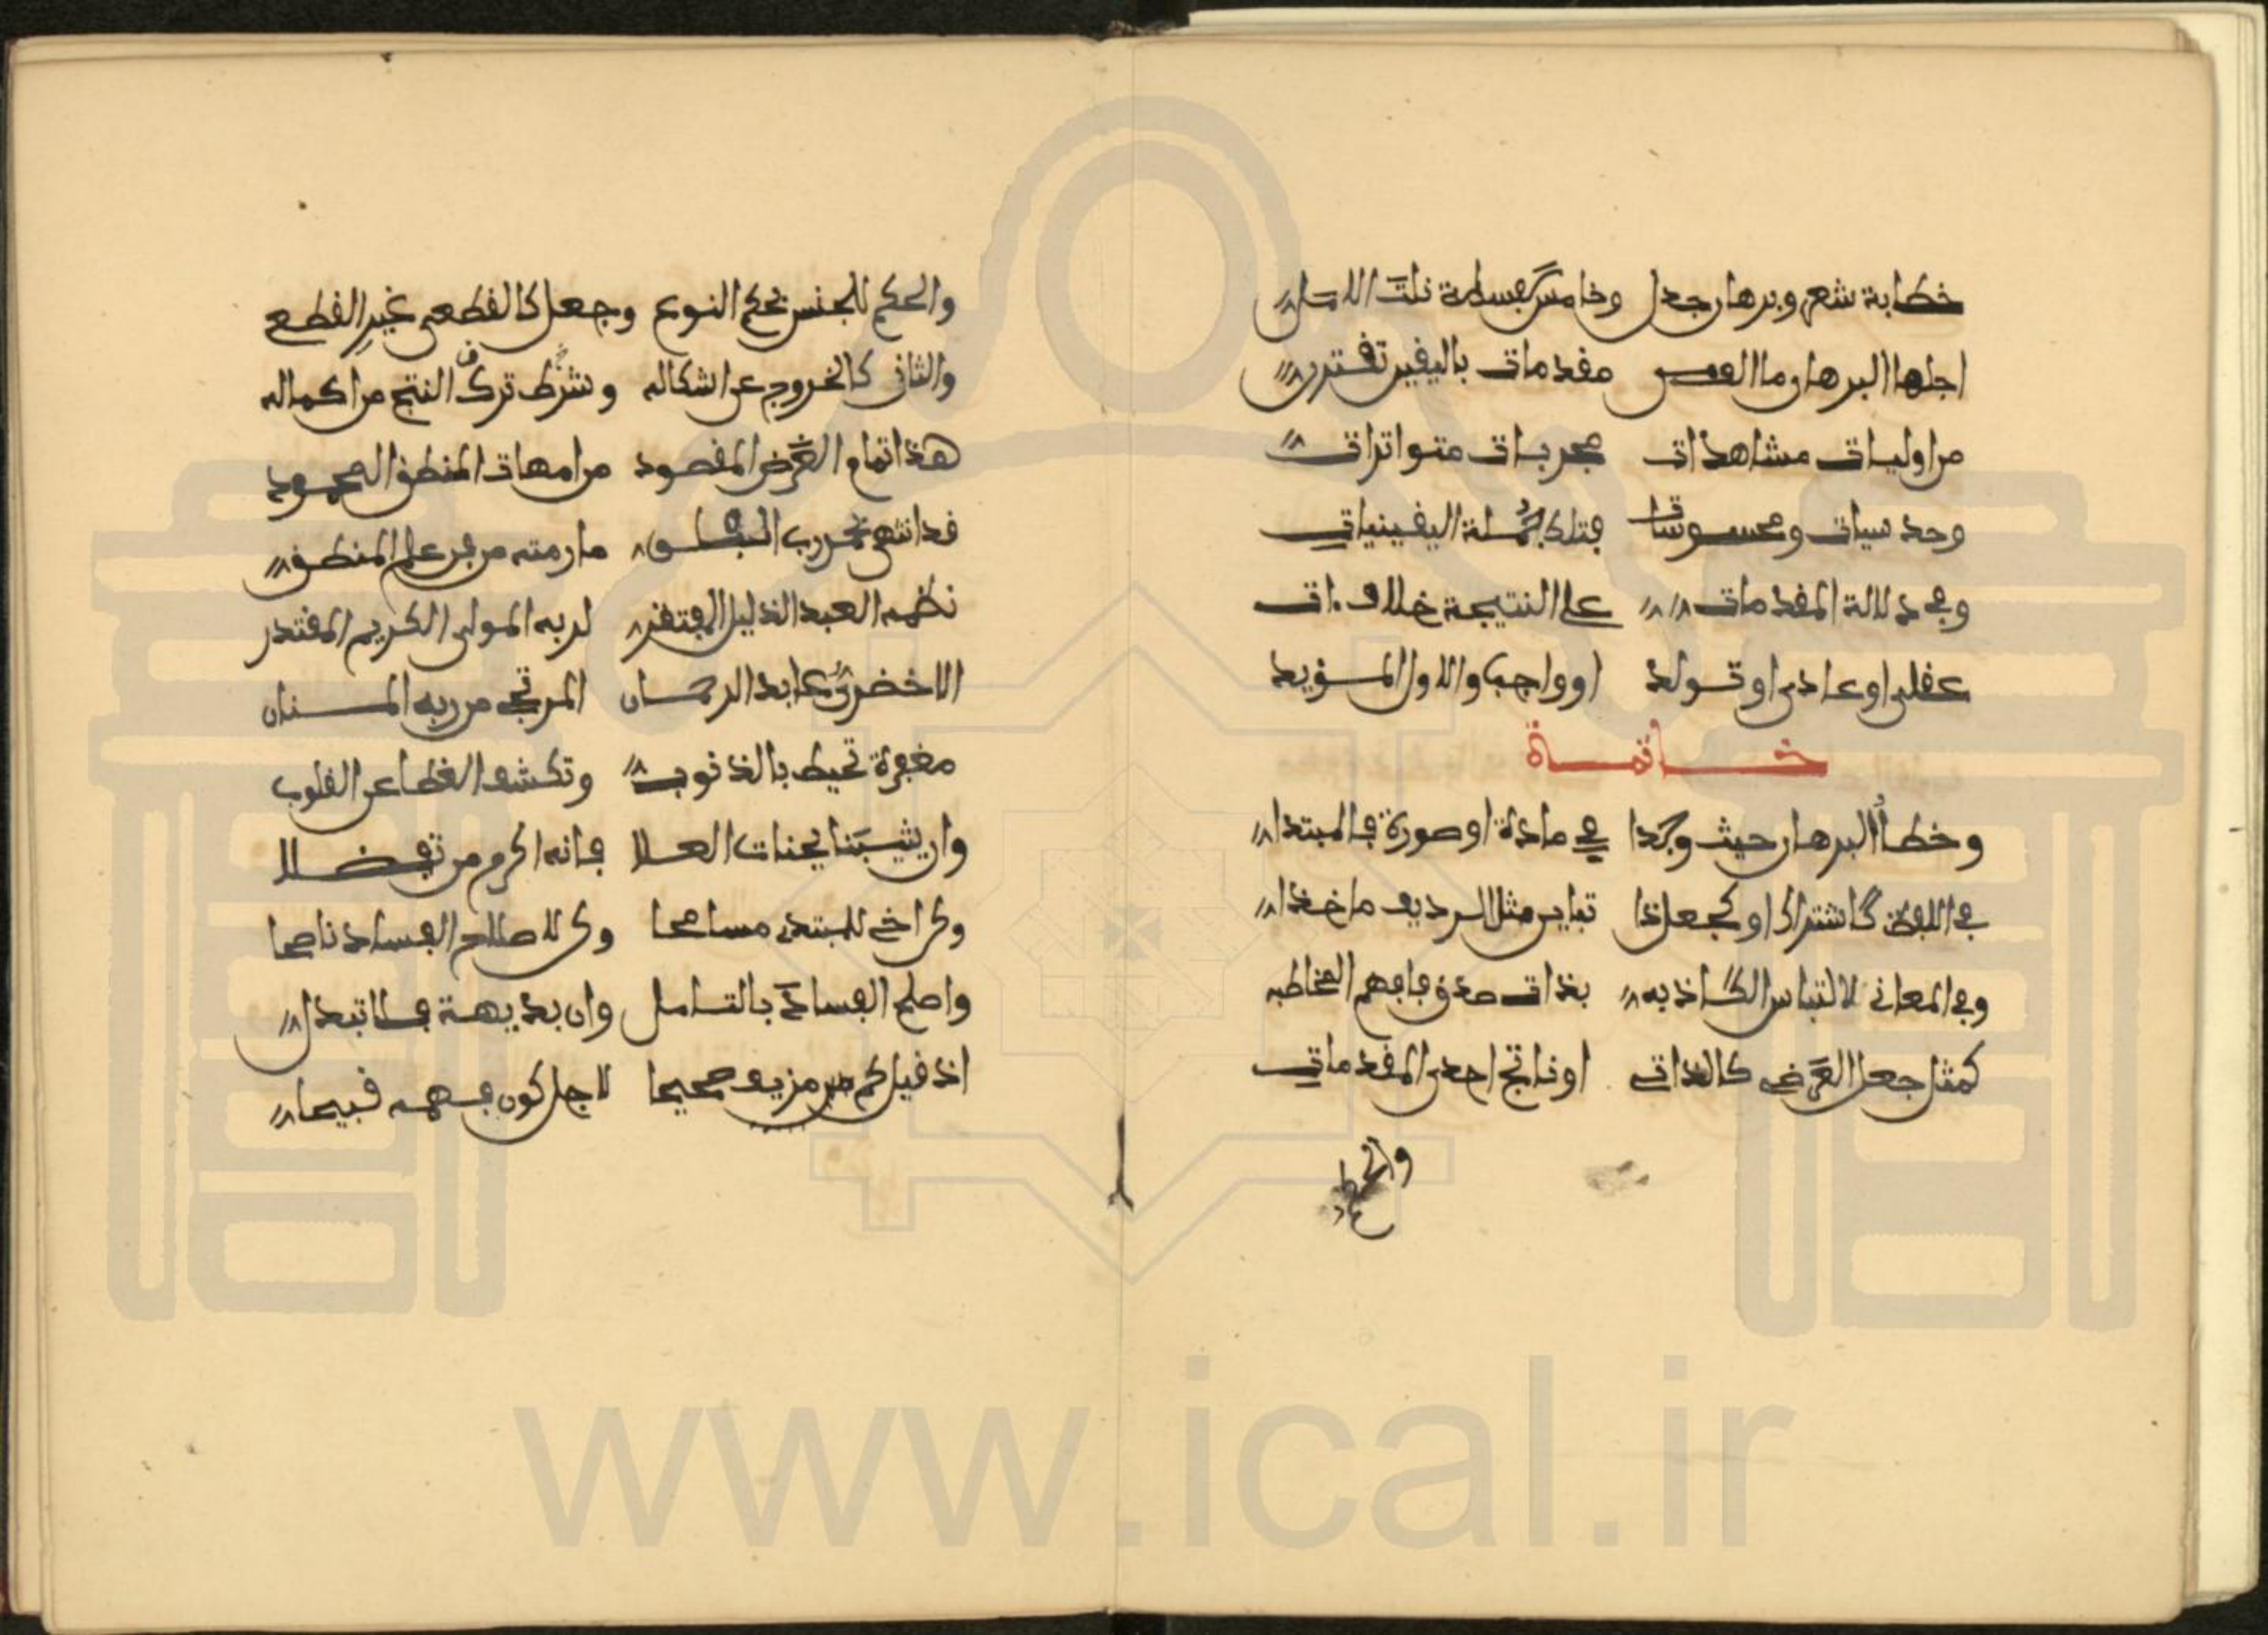 خطابة شعر وبرهان جدل وخامس سفسطة نلت الامل
اجلها البرهان ما الف من مقدمات باليقين تقترن
من اوليات مشاهدات مجربات متواترات
وحدسيات ومحسوسات فتلك جملة اليقينيات
وفي دلالة المقدمات على النتيجة خلاف ات
عقلي او عادي او تولد او واجب والاول المؤيد
خاتمة
وخطأ البرهان حيث وجدا في مادة او صورة فالمبتدا
في اللفظ كاشتراك او كجعل ذا تباين مثل الرديف ماخذا
وفي المعاني لالتباس الكاذبه بذات صدق فافهم المخاطبه
كمثل جعل العرضي كالذاتي او ناتج احدى المقدماتي
والحكم
والحكم للجنس بحكم النوع وجعل كالقطعي غير القطع
والثان كالخروج عن اشكاله وشرط ترك النتج من اكماله
هذا تمام الغرض المقصود من امهات المنطق المحمود
قد انتهى بحمد رب الفلق ما رمته من فن علم المنطق
نظمه العبد الذليل المفتقر لربه المولى الكريم المقتدر
الاخضري عابد الرحمان المرتجي من ربه المنان
مغفرة تحيط بالذنوب وتكشف الغطا عن القلوب
وان يثيبنا بجنات العلا فانه اكرم من تفضلا
وكن اخي للمبتدي مسامحا وكن لاصلاح الفساد ناصحا
واصلح الفساد بالتامل وان بديهة فلا تبدل
اذ قيل كم من مزيف صحيحا لاجل كون فهمه قبيحا
www.ical.ir